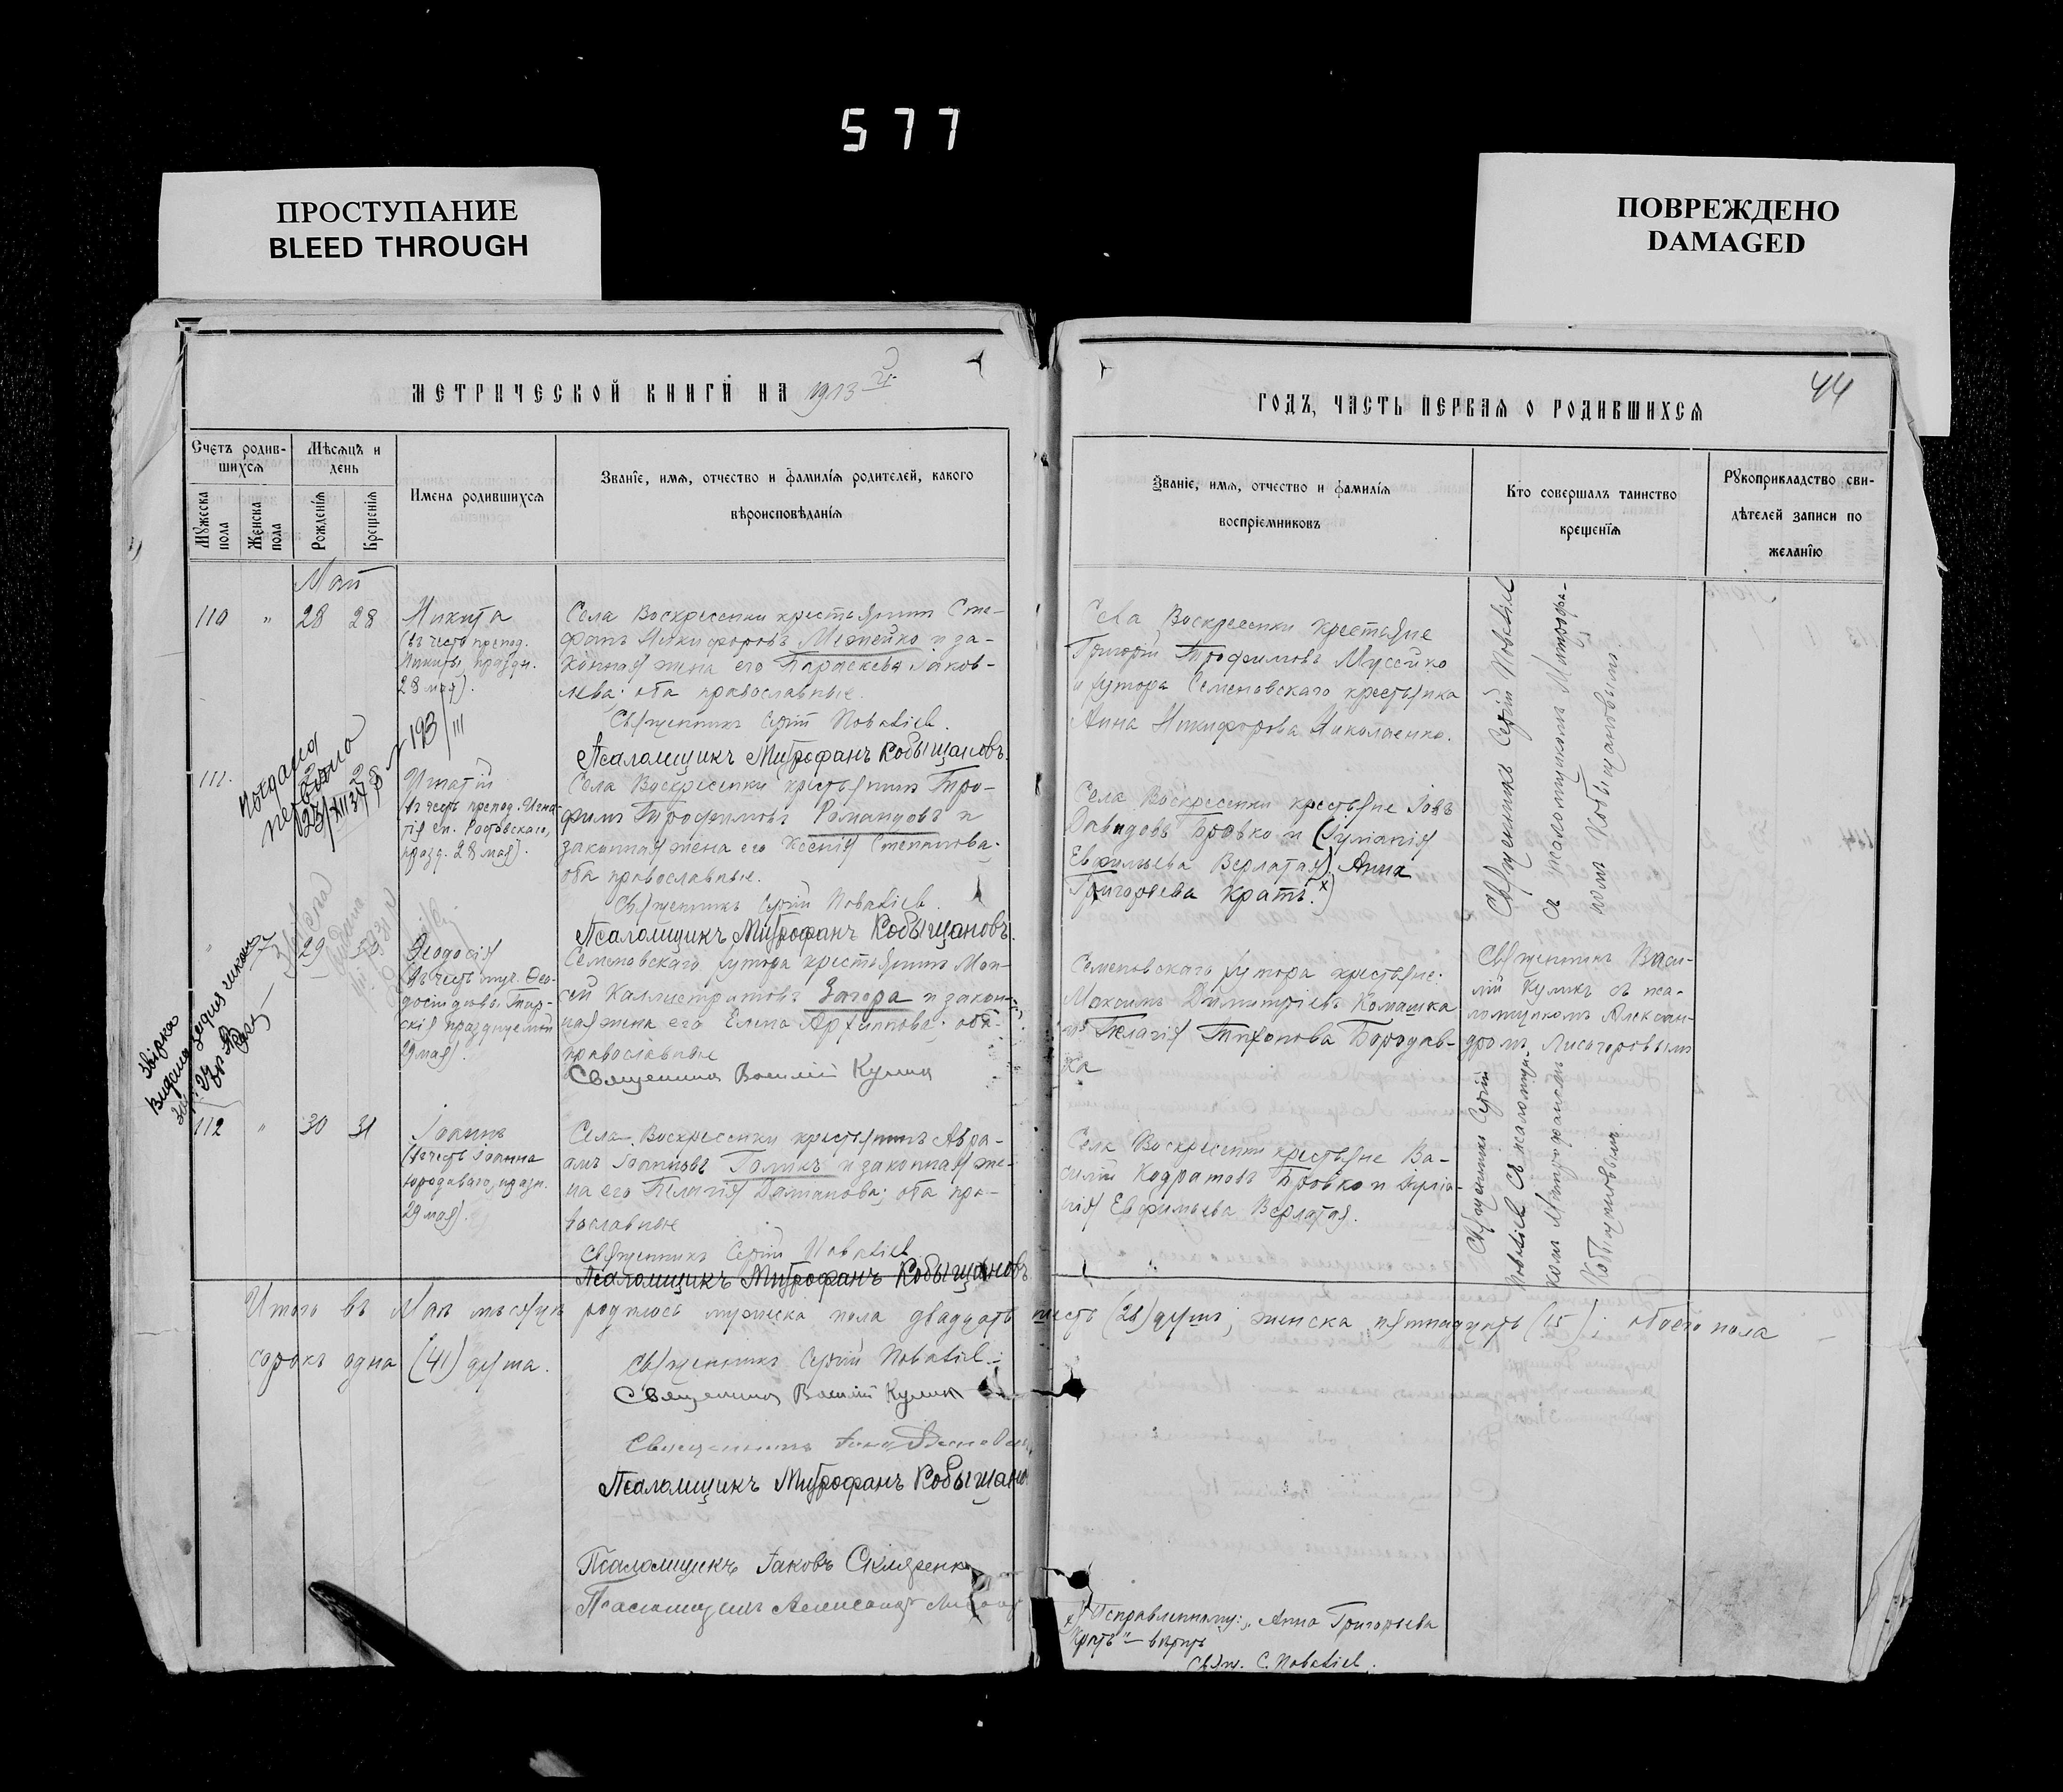 577
ПРОСТУПАНИЕ
BLEED THROUGH
ПОВРЕЖДЕНО
DAMAGED
МЕТРИЧЕСКОЙ КНИГИ НА 1913 й
ГОДЪ, ЧАСТЬ ПЕРВАЯ О РОДИВШИХСЯ
44
Счетъ родив-
шихся
Мѣсяцъ и
день
Мужеска
пола
Женска
пола
Рожденія
Крещенія
Имена родившихся
Званіе, имя, отчество и фамилія родителей, какого
вѣроисповѣданія
Званіе, имя, отчество и фамилія
воспріемниковъ
Кто совершалъ таинство
крещенія
Рукоприкладство сви-
дѣтелей записи по
желанію
Май
110 " 28 28
Никита
(въ честь препод.
Никиты, праздн.
28 мая).
Села Воскресенки крестьянинъ Сте-
фанъ Никифоровъ и за-
конная жена его Параскева Іаков-
лева; оба православные.
Священникъ Сергій
Псаломщикъ Митрофанъ Кобыщановъ.
Села Воскресенки крестьяне
Григорій Трофимовъ Муссійко
и хутора Семеновскаго крестьянка
Анна Никифорова Николаенко.
Священникъ Сергій
съ псаломщикомъ Митрофа-
номъ Кобыщановымъ.
193/III
111.
Игнатій
(въ честь препод. Игна-
тія еп. Ростовскаго,
празд. 28 мая).
Села Воскресенки крестьянинъ Тро-
фимъ Трофимовъ Романцовъ и
законная жена его Ксенія Степанова;
оба православные.
Священникъ Сергій
Псаломщикъ Митрофанъ Кобыщановъ.
Села Воскресенки крестьяне Іовъ
Давидовъ Бровко и (Іуліанія
Евфимьева Верлатая) Анна
Григорьева Кратъ. х)
" 29
Ѳеодосія
(въ честь муч. Ѳео-
досіи дѣвы Тир-
скія празднуемой
29 мая).
Семеновскаго хутора крестьянинъ Мои-
сей Каллистратовъ Загора и закон-
ная жена его Елена Архиппова; оба
православные
Священникъ Василій Куликъ
Семеновскаго хутора крестьяне:
Максимъ Димитріевъ Комашка
и Пелагія Тихонова Бородав-
ка
Священникъ Васи-
лій Куликъ съ пса-
ломщикомъ Алексан-
дромъ Лисогоровымъ
112 " 30 31
Іоаннъ
(въ честь Іоанна
юродиваго, праздн.
29 мая).
Села Воскресенки крестьянинъ Авра-
амъ Іоанновъ Голикъ и законная же-
на его Пелагія Даміанова; оба пра-
вославные
Священникъ Сергій
Псаломщикъ Митрофанъ Кобыщановъ
Села Воскресенки крестьяне Ва-
силій Кодратовъ Бровко и Іуліа-
нія Евфимьева Верлатая.
Священникъ Сергій
съ псаломщи-
комъ Митрофаномъ
Кобыщановымъ.
Итого въ Маѣ мѣсяцѣ родилось мужеска пола двадцать шесть (26) душъ; женска пятнадцать (15); обоего пола
сорокъ одна (41) душа.
Священникъ Сергій
Священникъ Василій Куликъ
Священникъ
Псаломщикъ Митрофанъ Кобыщано
Псаломщикъ Іаковъ Скляренко
Псаломщикъ Александръ
х) Исправленному: "Анна Григорьева
Кратъ" – вѣрить
Свящ. С.